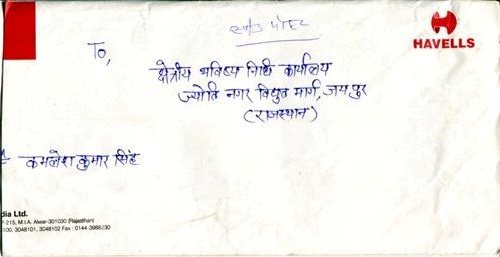 स्पीड पोस्ट
HAVELLS
To,
क्षेत्रीय भविष्य निधि कार्यालय
ज्योति नगर विद्युत मार्ग, जयपुर
(राजस्थान)
कमलेश कुमार सिंह
dia Ltd.
215, M.I.A. Alwar-301030 (Rajasthan)
100, 3048101, 3048102 Fax : 0144-3988230